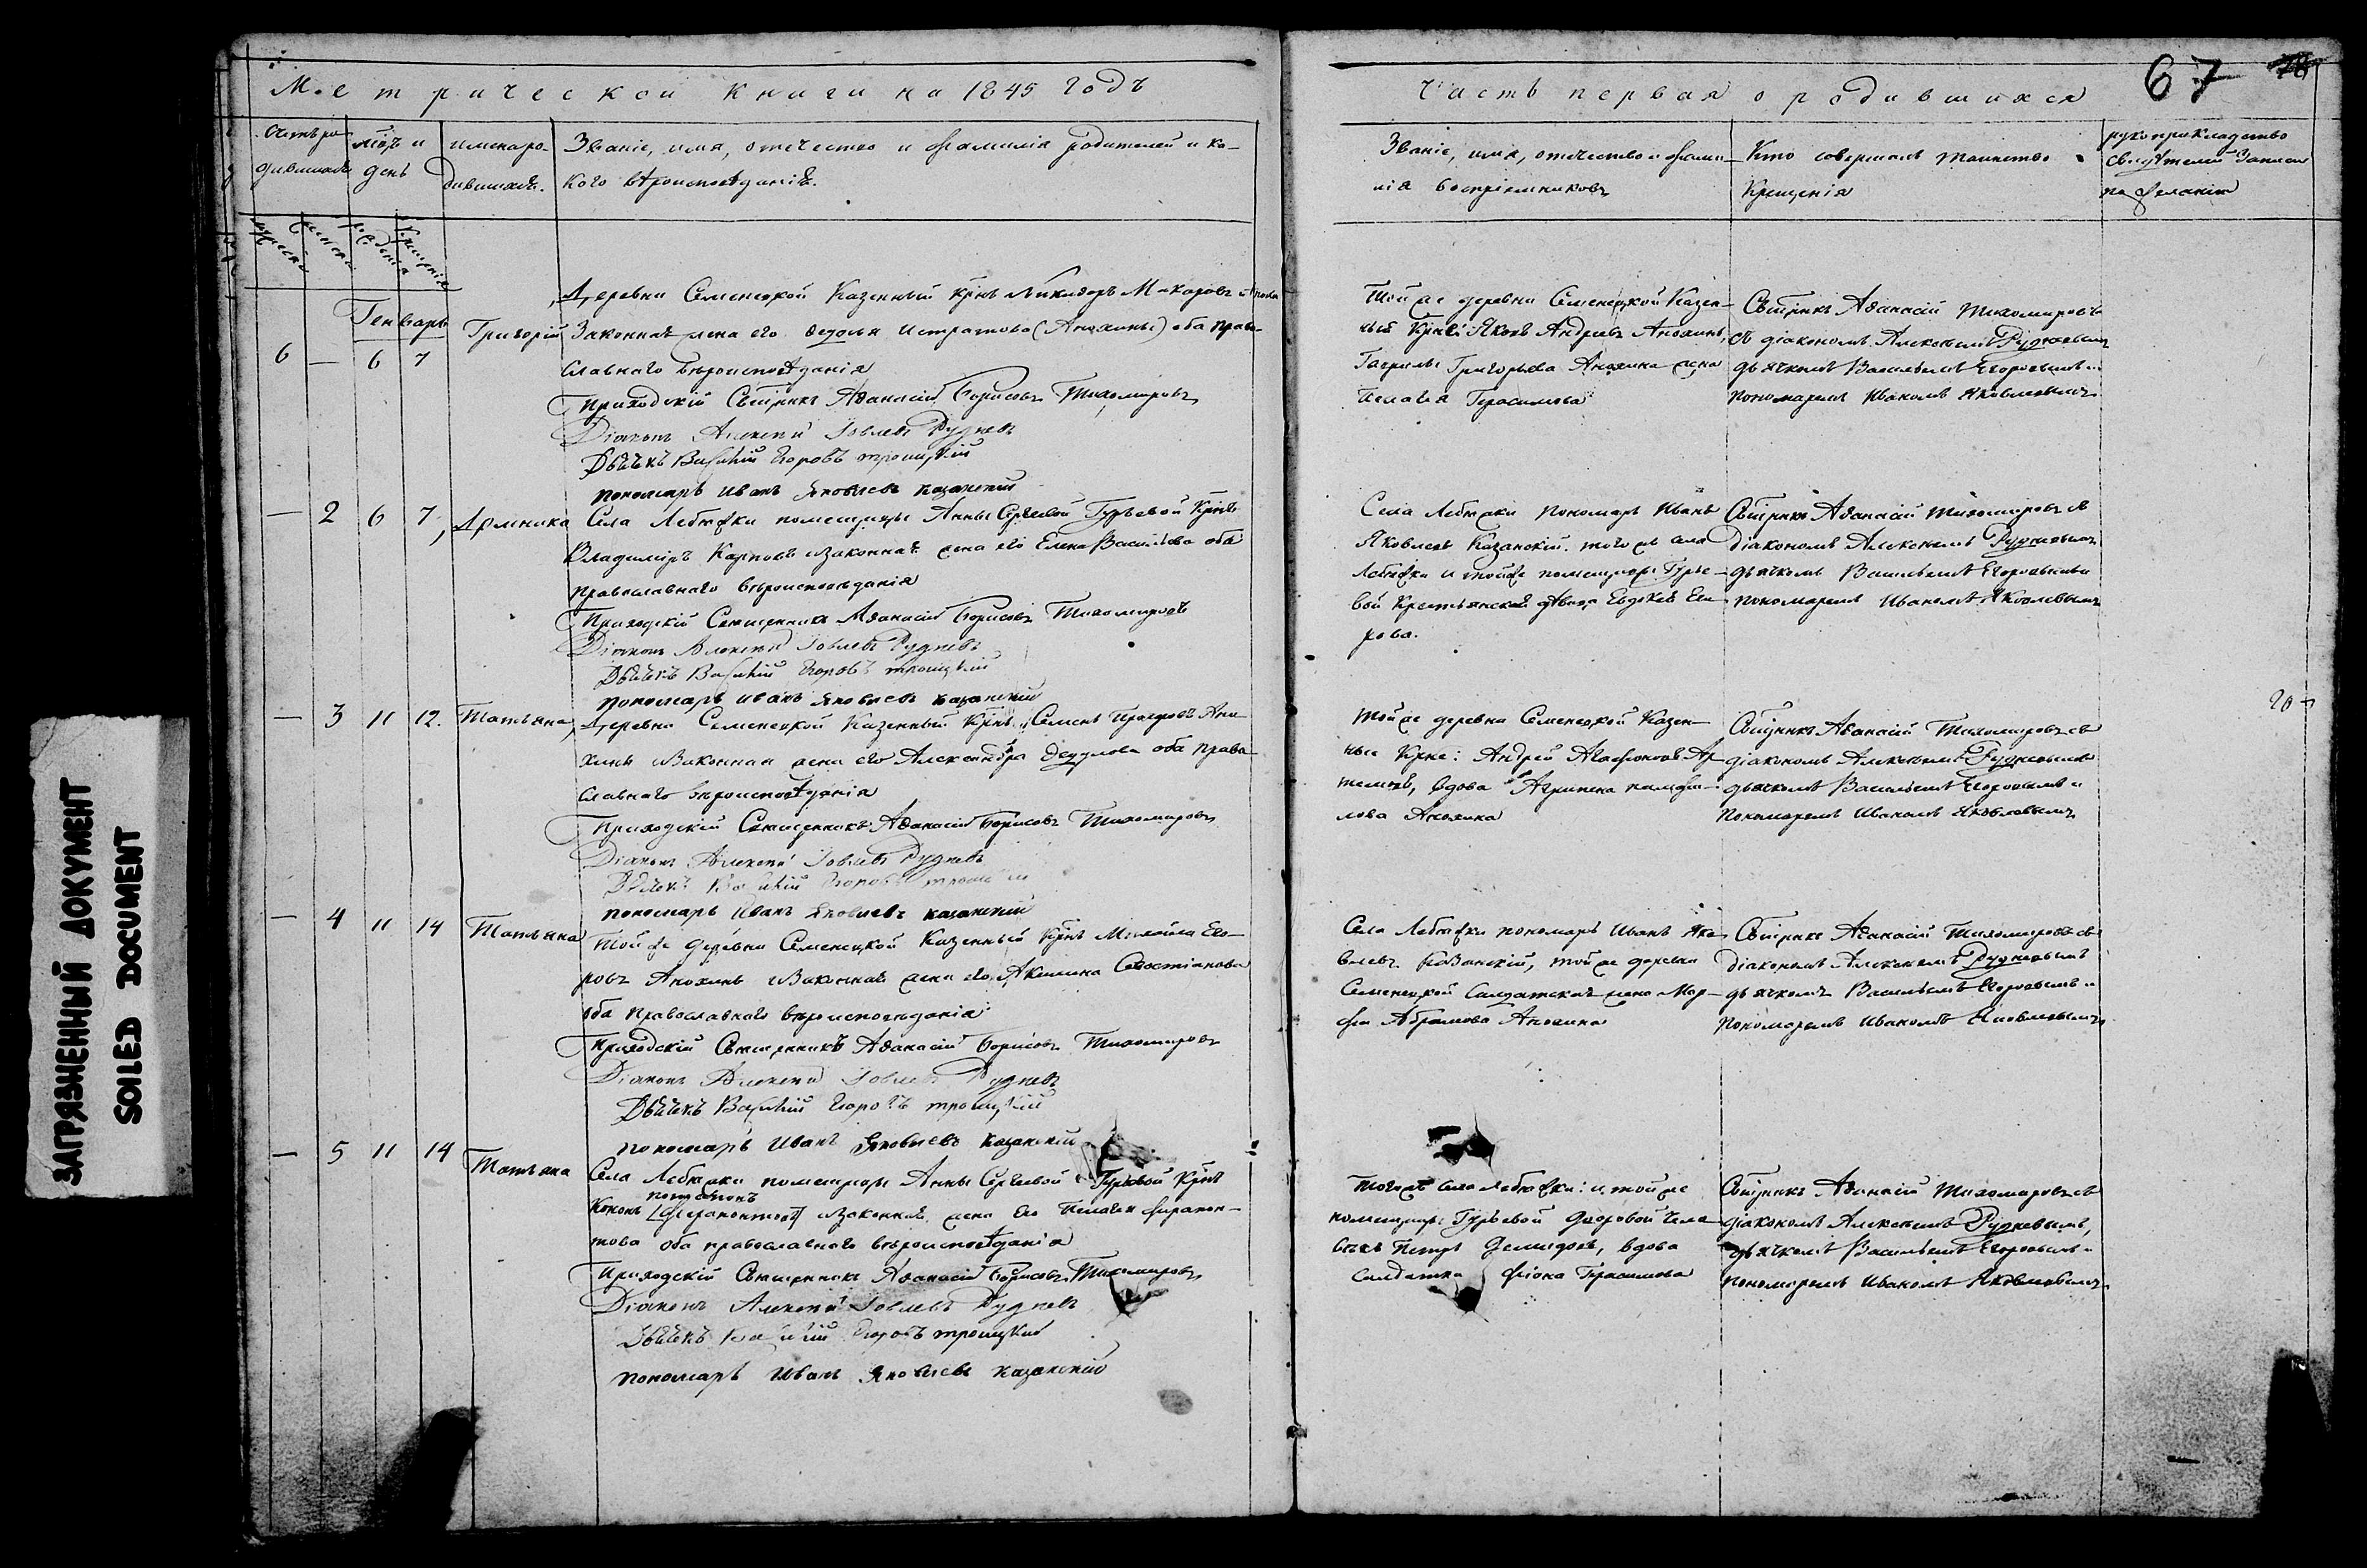 Метрической книги на 1845 годъ
Часть первая о родившихся
67
Счетъ ро-
дившихся
мѣсяцъ и
день
имена ро-
дившихся.
Званіе, имя, отечество и фамилія родителей и ка-
кого вѣроисповѣданія.
Званіе, имя, отечество и фами-
лія воспріемниковъ
Кто совершалъ таинство
Крещенія
рукоприкладство
свидѣтелей записи
по желанію
Генварь
6 — 6 7
Григорій
Деревни Семенецкой Казенный крнъ Никифоръ Макаровъ и
Законная жена его Истратова (Анохины) оба право-
славнаго вѣроисповѣданія
Приходскій Сщнникъ Афанасій Борисовъ Тихомировъ
Діаконъ Алексѣй Іовлевъ Рудневъ
Дьячекъ Василій Егоровъ троицкій
пономарь Иванъ Яковлевъ казанскій
Той же деревни Семенецкой Казен-
ный Крнъ: Яковъ Андреевъ Анохинъ,
Гаврилы Григорьева Анохина жена
Пелагея Герасимова
Сщнникъ Афанасій Тихомировъ
съ діакономъ Алексѣемъ Рудневымъ
дьячкомъ Васильемъ Егоровымъ и
пономаремъ Иваномъ Яковлевымъ
— 2 6 7
Домника
Села Лебяжки помещицы Анны Сергѣевой Гурьевой Крнъ
Владиміръ Карповъ и законная жена его Елена Васильева оба
православнаго вѣроисповѣданія
Приходскій Священникъ Афанасій Борисовъ Тихомировъ
Діаконъ Алексѣй Іовлевъ Рудневъ
Дьячекъ Василій Егоровъ троицкій
пономарь иванъ Яковлевъ казанскій
Села Лебяжки пономарь Иванъ
Яковлевъ Казанскій. того же села
Лебяжки и тойже помещицы Гурье-
вой Крестьянская дѣвица Евдокія Его-
рова.
Сщнникъ Афанасій Тихомировъ съ
діакономъ Алексѣемъ Рудневымъ
дьячкомъ Васильемъ Егоровымъ и
пономаремъ Иваномъ Яковлевымъ
— 3 11 12.
Татьяна
Деревни Семенецкой Казенный Крнъ Семенъ Ано-
хинъ и Законная жена его Александра оба право-
славнаго вѣроисповѣданія
Приходскій Священникъ Афанасій Борисовъ Тихомировъ
Діаконъ Алексѣй Іовлевъ Рудневъ
Дьячекъ Василій Егоровъ троицкій
пономарь Иванъ Яковлевъ казанскій
Той же деревни Семенецкой Казен-
ные Крне: Андрей Агафоновъ Ар-
вдова Агрипена
лова Анохина
Сщнникъ Афанасій Тихомировъ съ
діакономъ Алексѣемъ Рудневымъ
дьячкомъ Васильемъ Егоровымъ и
Пономаремъ Иваномъ Яковлевымъ
— 4 11 14
Татьяна
Той же деревни Семенецкой Казенный Крнъ Михайла Его-
ровъ Анохинъ и Законная жена его Акилина Севостіанова
оба Православнаго вѣроисповѣданія
Приходскій Священникъ Афанасій Борисовъ Тихомировъ
Діаконъ Алексѣй Іовлевъ Рудневъ
Дьячекъ Василій Егоровъ троицкій
пономарь Иванъ Яковлевъ казанскій
Села Лебяжки пономарь Иванъ Яко-
влевъ Казанскій, той же деревни
Семенецкой Салдатская жена Мар-
фа Абрамова Анохина
Сщнникъ Афанасій Тихомировъ съ
діакономъ Алексѣемъ Рудневымъ
дьячкомъ Васильемъ Егоровымъ и
пономаремъ Иваномъ Яковлевымъ
— 5 11 14
Татьяна
Села Лебяжки помещицы Анны Сергѣевой Гурьевой Крнъ
Кононъ и законная жена его Пелагея Фирапон-
това оба православнаго вѣроисповѣданія
Приходскій Священникъ Афанасій Борисовъ Тихомировъ
Діаконъ Алексѣй Іовлевъ Рудневъ
Дьячекъ Василій Егоровъ троицкій
пономарь Иванъ Яковлевъ казанскій
Тогожъ села Лебяжки: и той же
помещицы Гурьевой дворовой чело-
вѣкъ Петръ Демидовъ, вдова
Салдатка Фіона Герасимова
Сщнникъ Афанасій Тихомировъ съ
діакономъ Алексѣемъ Рудневымъ,
дьячкомъ Васильемъ Егоровымъ и
пономаремъ Иваномъ Яковлевымъ
ЗАГРЯЗНЕННЫЙ ДОКУМЕНТ
SOILED DOCUMENT